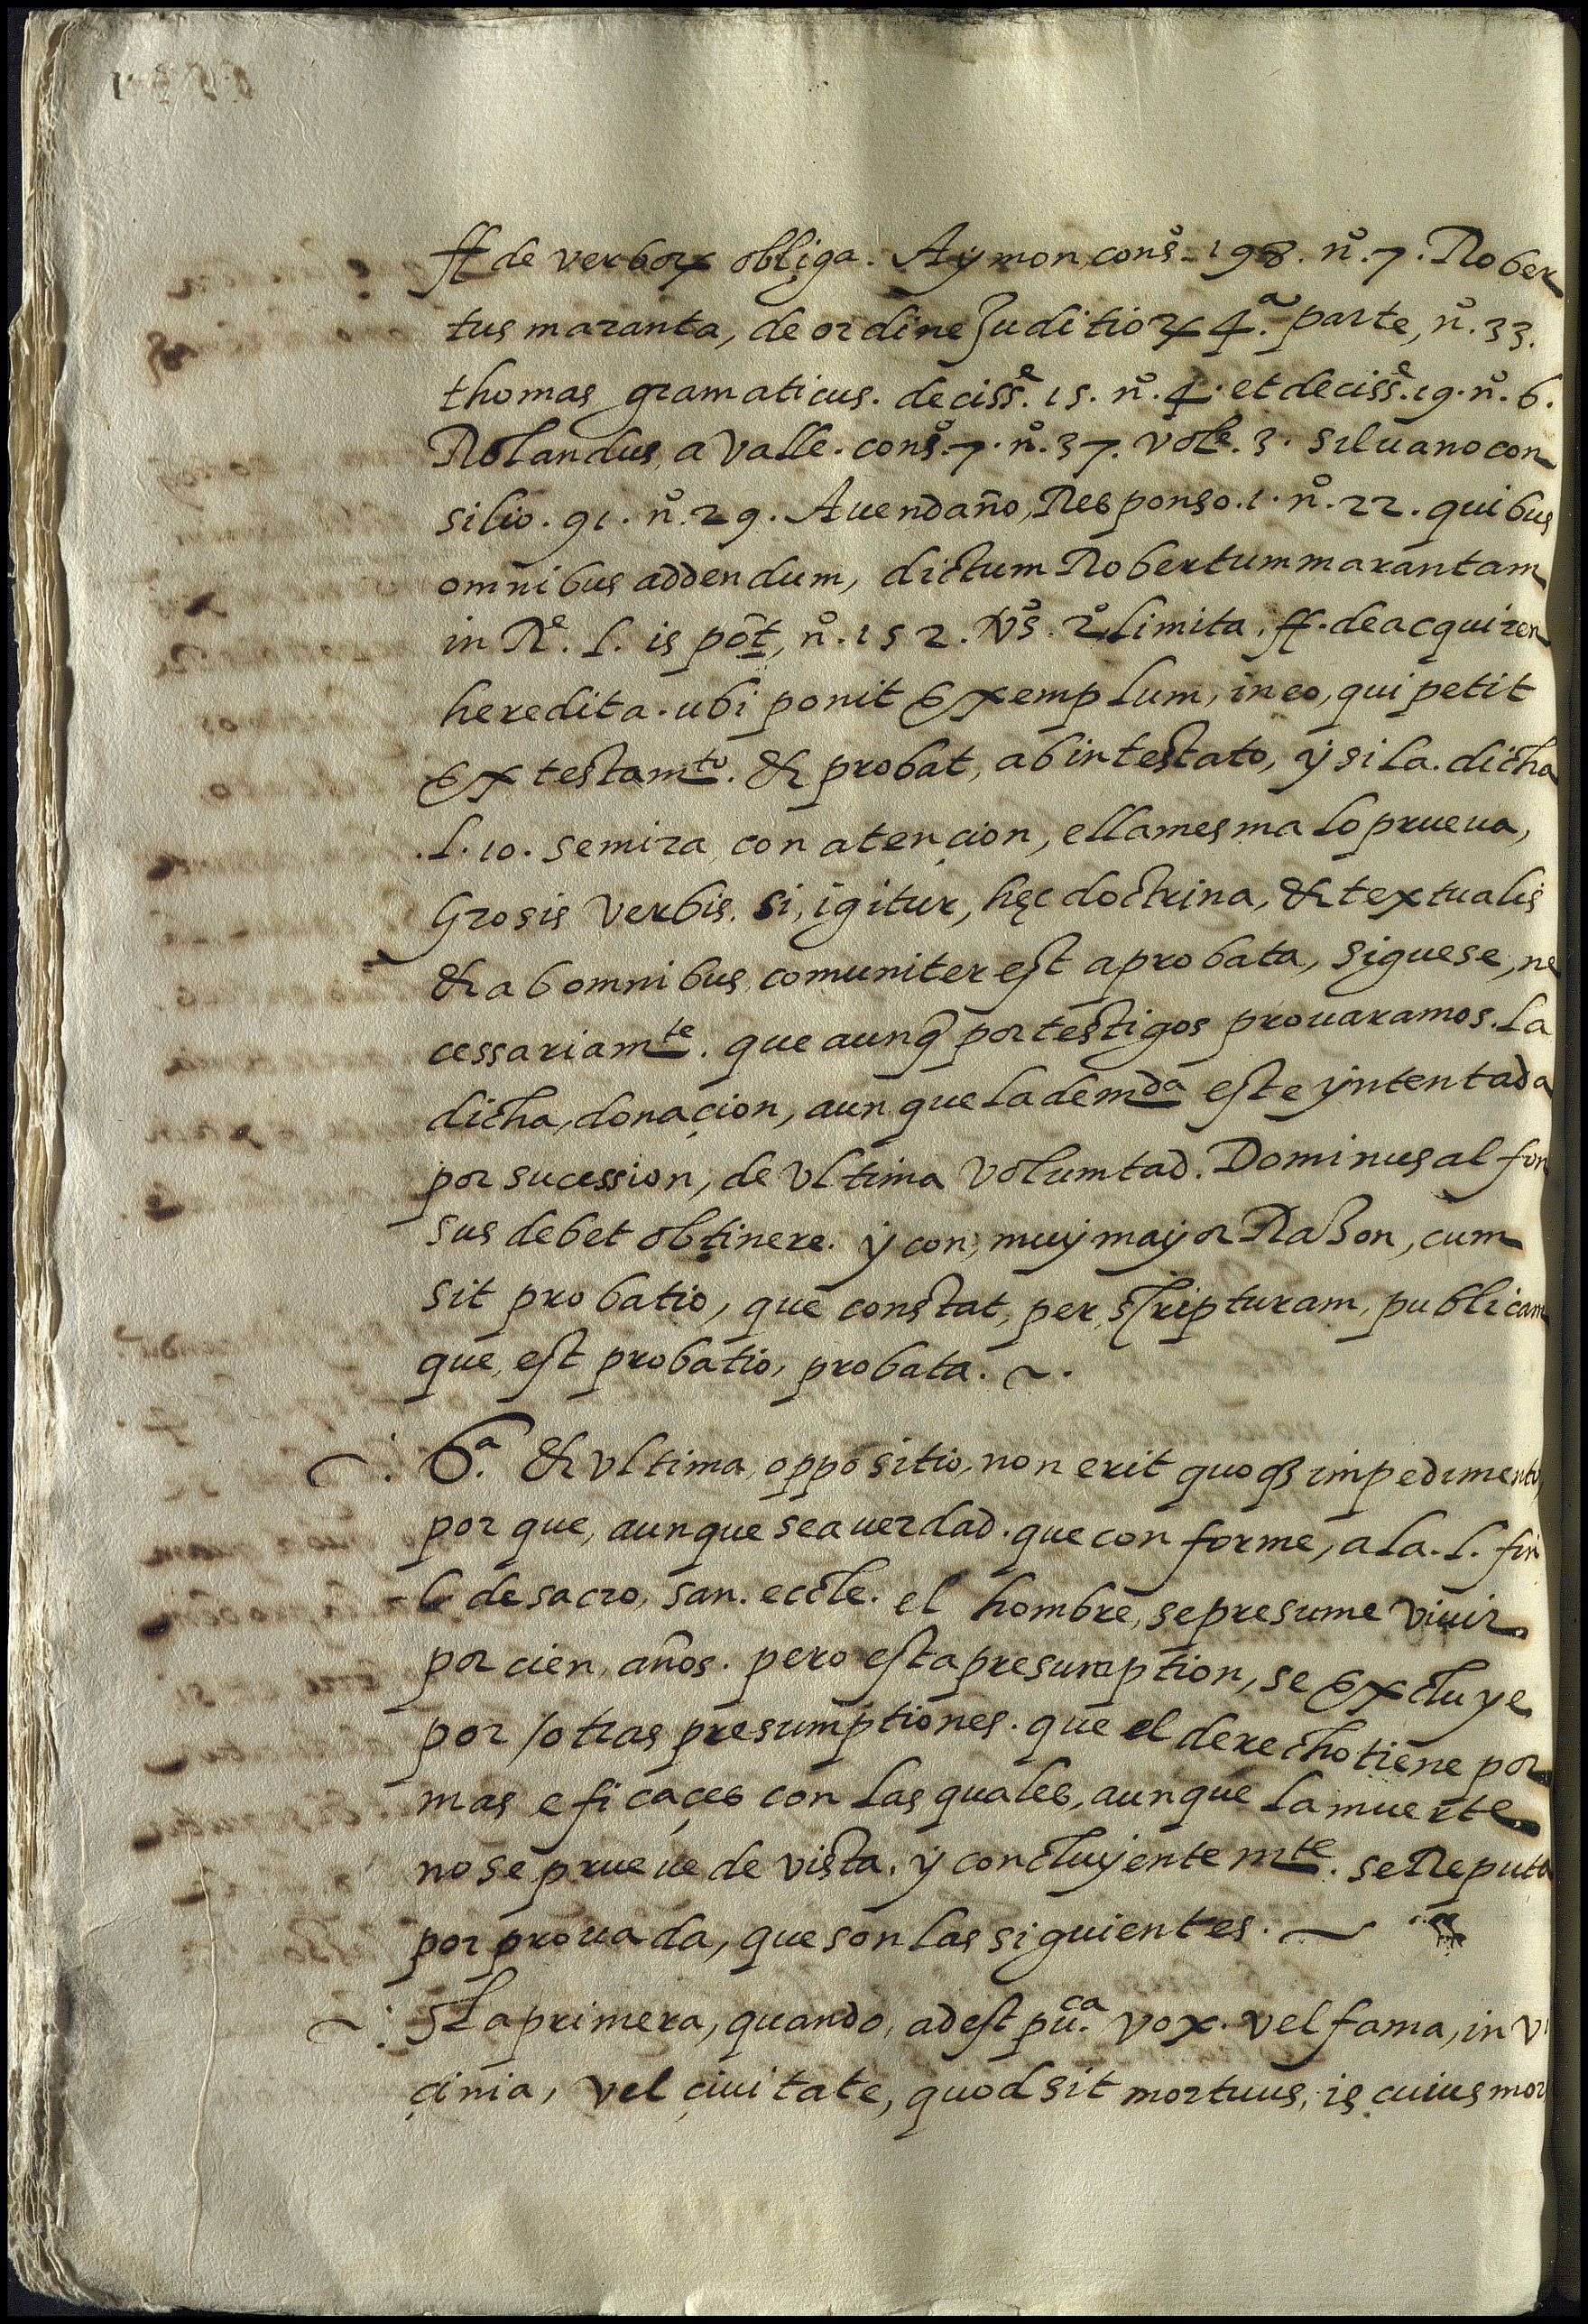 ff de verborx obliga. Aymon, consº. 198. nº. 7. Rober
tus maranta, de ordine Juditiorx 4ª. parte, nº. 33.
thomas gramaticus. decissᵉ. 15. nº. 4. et decissᵉ. 19. nº. 6.
Rolandus, a valle. consº. 7. nº. 37. volᵉ. 3. siluano con
silio. 91. nº. 29. Auendaño, Responso. 1. nº. 22. quibus
omnibus addendum, dictum Robertum marantam
in Rᵉ. l. is põt, nº. 152. vºs. 2º limita. ff. de acquiren
heredita. ubi ponit exemplum, in eo, qui petit
ex testamᵗᵒ. & probat, abintestato, y si la. dicha
.l. 10. se mira, con atençion, ella mesma lo prueua,
Grosis verbis. si, igitur, hęc doctrina, & textualis
& ab omnibus, comuniter est aprobata, siguese, ne
cessariamᵗᵉ. que aunq̃ por testigos prouaramos. la
dicha, donaçion, aunque la demᵈᵃ este yntentada
por sucession, de vltima volumtad. Dominus alfon
sus debet obtinere. y con, muy mayor Razon, cum
sit probatio, que constat, per, scripturam, publicam
que, est probatio, probata. ~.
~. 6ª. & vltima, oppositio, non erit quoqȝ impedimento,
por que, aunque sea uerdad. que conforme, a la. l. fin
C de sacro, san. eccle. el hombre, se presume viuir
por cien, años. pero esta presumption, se excluye
por / otras presumptiones. que el derecho tiene por
mas eficaçes con las quales, aunque la muerte
no se prueue de vista. y concluyentemᵗᵉ. se Reputa
por prouada, que son las siguientes. ~
~: La primera, quando, adest puᶜᵃ. vox. vel fama, in vi
çinia, vel çiuitate, quod sit mortuus, is cuius mor